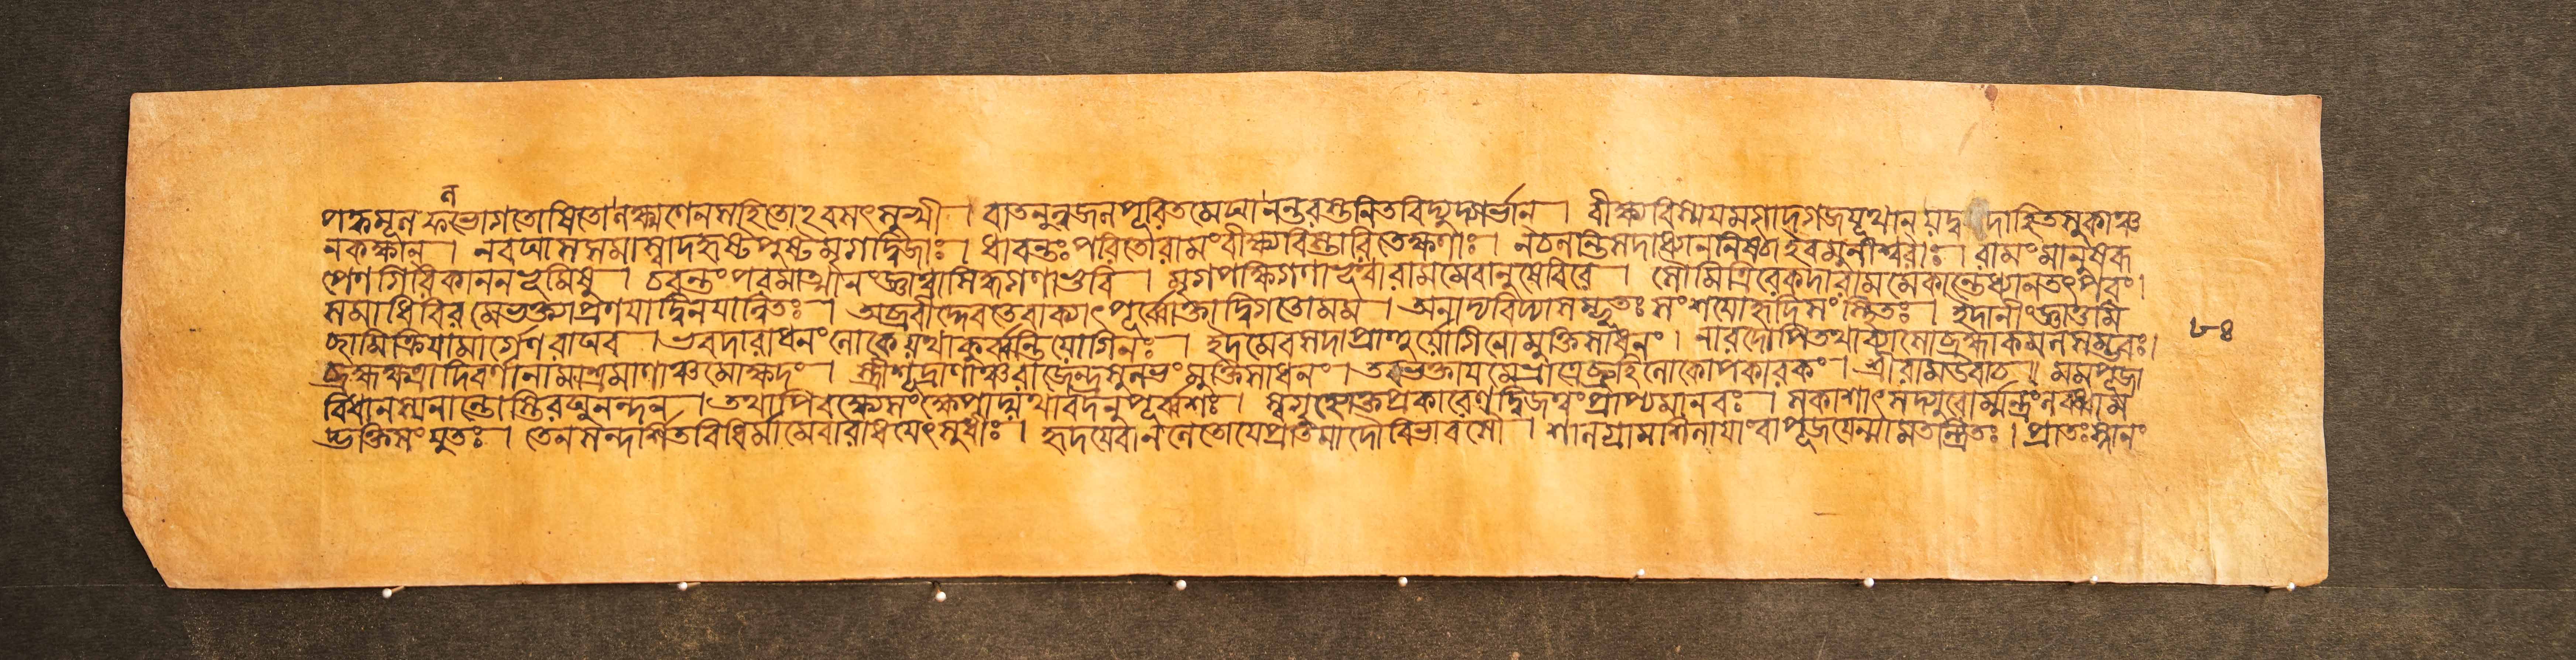 ল
পক্কমূলফভোগতোষিতোলক্ষ্মণেনসহিতোঽবসৎসুখী । বাতনুন্নজলপূরিতমেঘানন্তরস্তনিতবিদ্যুদ্গর্ভান । বীক্ষ্যবিস্ময়মগাদ্গজযূথান্ যদ্বদাহিতসুকাঞ্চ
নকক্ষান । নবঘাসসমাস্বাদহৃষ্টপুষ্টমৃগদ্বিজাঃ । ধাবন্তঃপরিতোরামংবীক্ষ্যবিস্ফারিতেক্ষণাঃ । নচলন্তিসদাধ্যাননিষ্ঠাইবমুনীশ্বরাঃ । রামংমানুষরূ
পেণগিরিকাননভূমিষু । চরন্তংপরমাত্মানংজ্ঞাত্বাসিদ্ধগণাভুবি । মৃগপক্ষিগণাভূত্বারামমেবানুসেবিরে । সৌমিত্রিরেকদারামমেকান্তেধ্যানতৎপরং ।
সমাধিবিরমেভক্ত্যাপ্রণয়াদ্বিনয়ান্বিতঃ । অব্রবীদ্দেবতেবাক্যাৎপূর্ব্বোক্তাদ্বিগতোমম । অনাদ্যবিদ্যাসম্ভূতঃসংশয়োহৃদিসংস্থিতঃ । ইদানীংজ্ঞাতুমি
চ্ছামিক্রিয়ামার্গেণরাঘব । ভবদারাধনংলোকেযথাকুর্ব্বন্তিযোগিনঃ । ইদমেবসদাপ্রাহুর্য্যোগিনোমুক্তিসাধনং । নারদোপিতথাব্যাসোব্রহ্মাকমলসম্ভবঃ ।
ব্রহ্মক্ষত্রাদিবর্ণানামাশ্রমাণাঞ্চমোক্ষদং । স্ত্রীশূদ্রাণাঞ্চরাজেন্দ্রসুলভংমুক্তিসাধনং । তবভক্তায়মেভ্রাত্রেব্রূহিলোকোপকারকং । শ্রীরামউবাচ ॥ মমপূজা
বিধানস্যনান্তোস্তিরঘুনন্দন । তথাপিবক্ষ্যেসংক্ষেপাদ্যথাবদনুপূর্ব্বশঃ । স্বগৃহ্যোক্তপ্রকারেণদ্বিজত্বংপ্রাপ্যমানবঃ । সকাশাৎসদ্গুরোর্ম্মন্ত্রংলব্ধ্বাম
দ্ভক্তিসংযুতঃ । তেনসন্দর্শিতবিধির্মামেবারাধয়েৎসুধীঃ । হৃদয়েবানলেতোয়েপ্রতিমাদৌবিভাবসৌ । শালগ্রামশিলায়াংবাপূজয়েন্মামতন্দ্রিতঃ । প্রাতঃস্নানং
৮৪